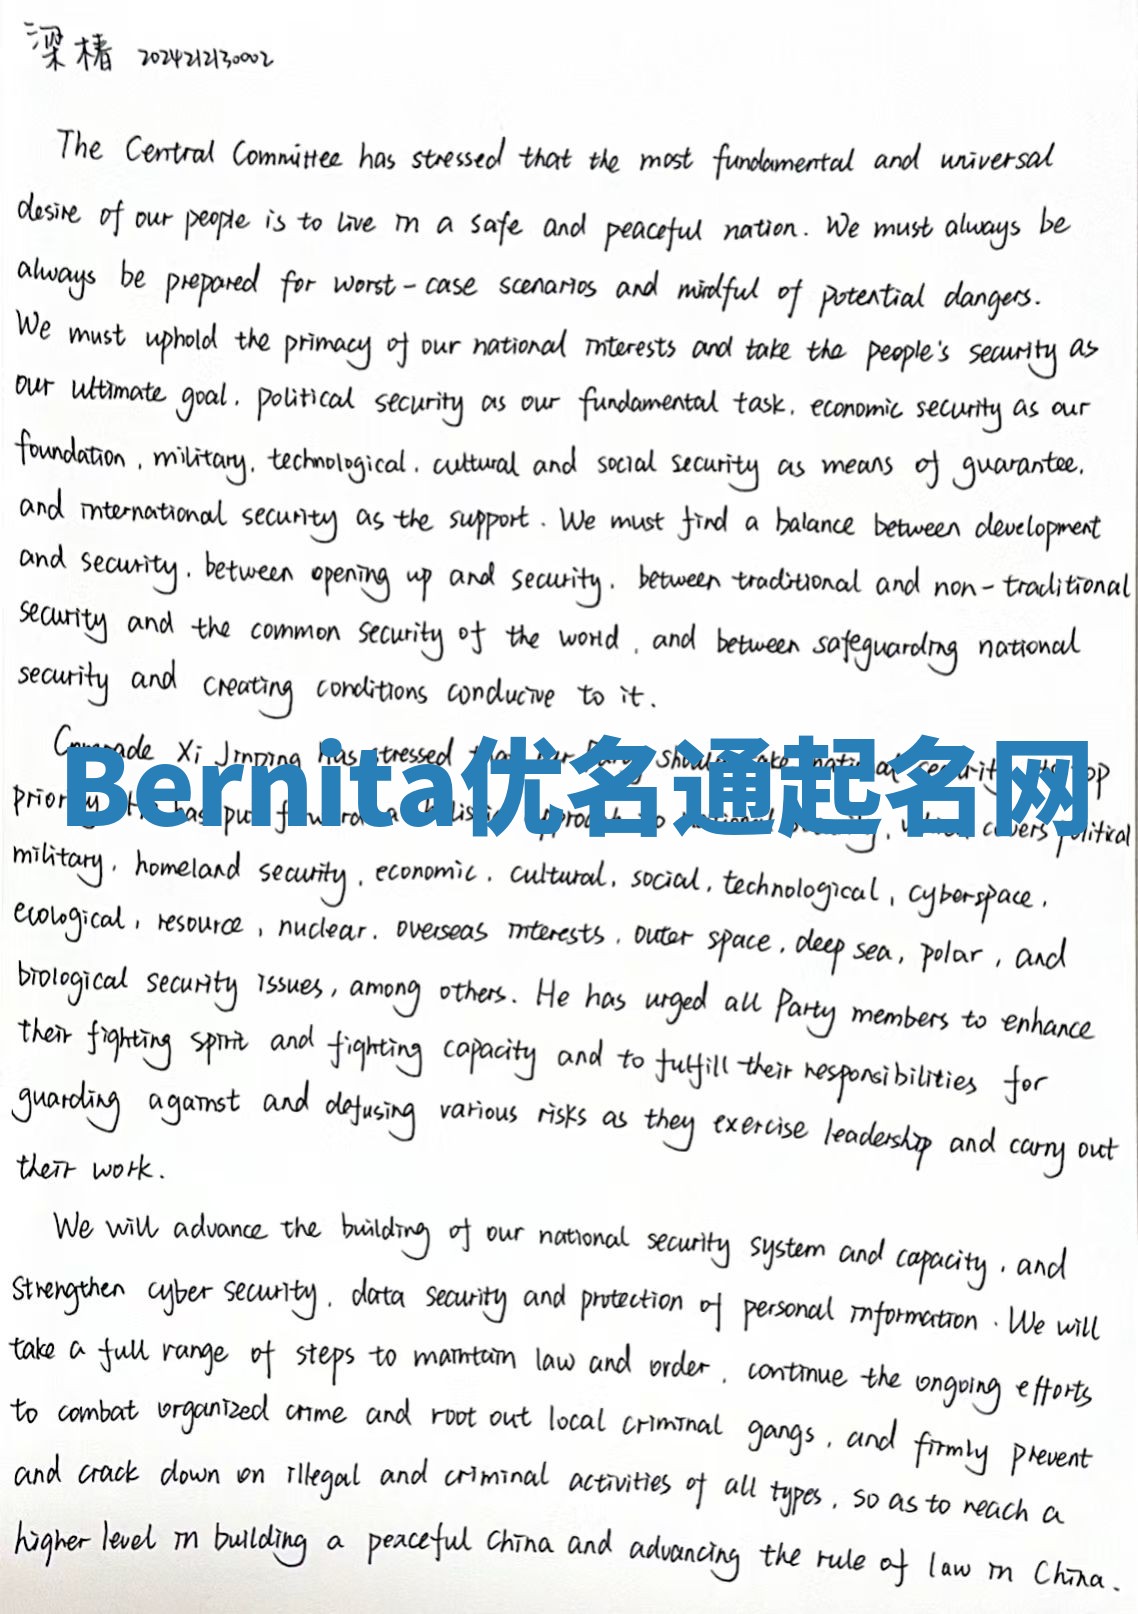 梁椿 2024212130002
The Central Committee has stressed that the most fundamental and universal
desire of our people is to live in a safe and peaceful nation. We must always be
always be prepared for worst-case scenarios and mindful of potential dangers.
We must uphold the primacy of our national interests and take the people's security as
our ultimate goal, political security as our fundamental task, economic security as our
foundation, military, technological, cultural and social security as means of guarantee,
and international security as the support. We must find a balance between development
and security, between opening up and security, between traditional and non-traditional
security and the common security of the world, and between safeguarding national
security and creating conditions conducive to it.
Comrade Xi Jinping has stressed should
Bernita优名通起名网
covers political
military, homeland security, economic, cultural, social, technological, cyberspace,
ecological, resource, nuclear, overseas interests, outer space, deep sea, polar, and
biological security issues, among others. He has urged all Party members to enhance
their fighting spirit and fighting capacity and to fulfill their responsibilities for
guarding against and defusing various risks as they exercise leadership and carry out
their work.
We will advance the building of our national security system and capacity, and
strengthen cyber security, data security and protection of personal information. We will
take a full range of steps to maintain law and order, continue the ongoing efforts
to combat organized crime and root out local criminal gangs, and firmly prevent
and crack down on illegal and criminal activities of all types, so as to reach a
higher level in building a peaceful China and advancing the rule of law in China.